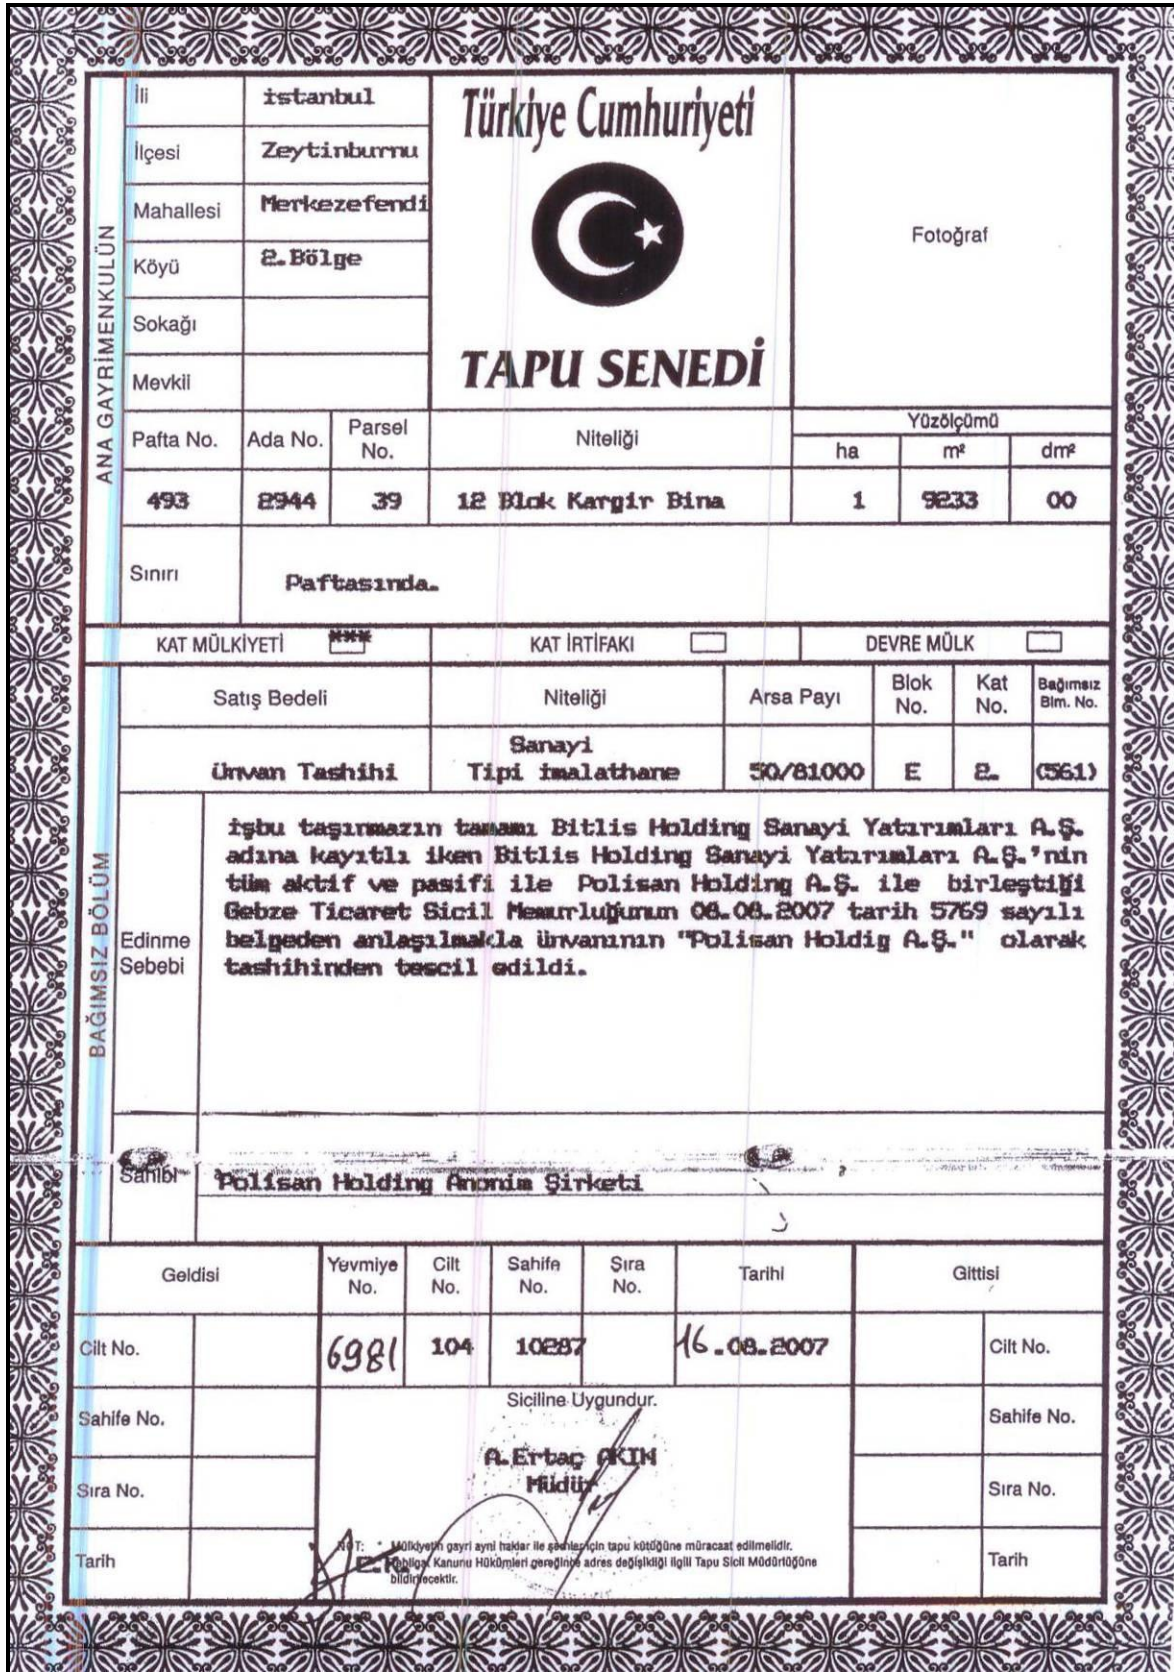 İli
istanbul
Türkiye Cumhuriyeti
İlçesi
Zeytinburnu
Mahallesi
Merkezefendi
Fotoğraf
Köyü
2.Bölge
Sokağı
TAPU SENEDİ
Mevkii
ANA GAYRİMENKULÜN
Pafta No.
Ada No.
Parsel No.
Niteliği
Yüzölçümü
ha
m²
dm²
493
2944
39
12 Blok Kargir Bina
1
9233
00
Sınırı
Paftasında.
KAT MÜLKİYETİ
***
KAT İRTİFAKI
DEVRE MÜLK
BAĞIMSIZ BÖLÜM
Satış Bedeli
Niteliği
Arsa Payı
Blok No.
Kat No.
Bağımsız Blm. No.
Ünvan Tashihi
Sanayi
Tipi imalathane
50/81000
E
2.
(561)
Edinme Sebebi
işbu taşınmazın tamamı Bitlis Holding Sanayi Yatırımları A.Ş.
adına kayıtlı iken Bitlis Holding Sanayi Yatırımları A.Ş.'nin
tüm aktif ve pasifi ile Polisan Holding A.Ş. ile birleştiği
Gebze Ticaret Sicil Memurluğunun 08.08.2007 tarih 5769 sayılı
belgeden anlaşılmakla ünvanının "Polisan Holdig A.Ş." olarak
tashihinden tescil edildi.
Sahibi
Polisan Holding Anonim Şirketi
Geldisi
Yevmiye No.
Cilt No.
Sahife No.
Sıra No.
Tarihi
Gittisi
Cilt No.
6981
104
10287
16.08.2007
Cilt No.
Siciline Uygundur.
Sahife No.
Sahife No.
A.Ertaç AKIN
Müdür
Sıra No.
Sıra No.
Tarih
NOT: * Mülkiyetin gayri ayni haklar ile şerhler için tapu kütüğüne müracaat edilmelidir.
Tebligat Kanunu Hükümleri gereğince adres değişikliği ilgili Tapu Sicil Müdürlüğüne
bildirilecektir.
Tarih